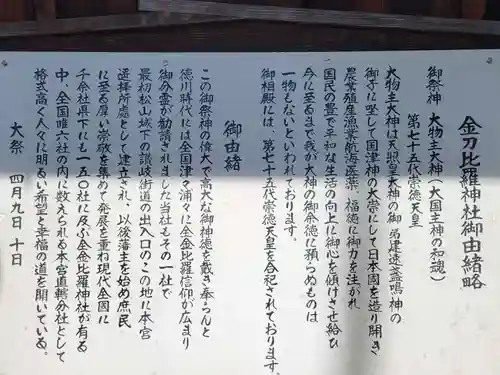 金刀比羅神社御由緒略
御祭神 大物主大神(大国主神の和魂)
第七十五代崇徳天皇
大物主大神は天照皇大神の御弟建速素盞鳴神の
御子に坐して国津神の大祟にして日本國を造り開き
農業殖産漁業航海医薬、福徳に御力を注がれ
国民の豊で平和な生活の向上に御心を傾けさせ給ひ
今に至るまで我が大神の御余徳に頼らぬものは
一物もないといわれております。
御相殿には、第七十五代崇徳天皇を合祀されております。
御由緒
この御祭神の偉大で高大な御神徳を戴き奉らんと
徳川時代には全国津々浦々に金全比羅信仰が広まり
御分霊が勧請されました当社もその一社で
最初松山城下の讃岐街道の出入口のこの地に本宮
遥拝所處として建立され、以後藩主を始め庶民
に至る厚い崇敬を集めて発展を重ね現代全国に
千余社県下にも一五〇社に及ぶ金全比羅神社が有る
中、全国唯六社の内に数えられる本宮直轄分社として
格式高く人々に明るい希望と幸福の道を開いている。
大祭 四月九日十日